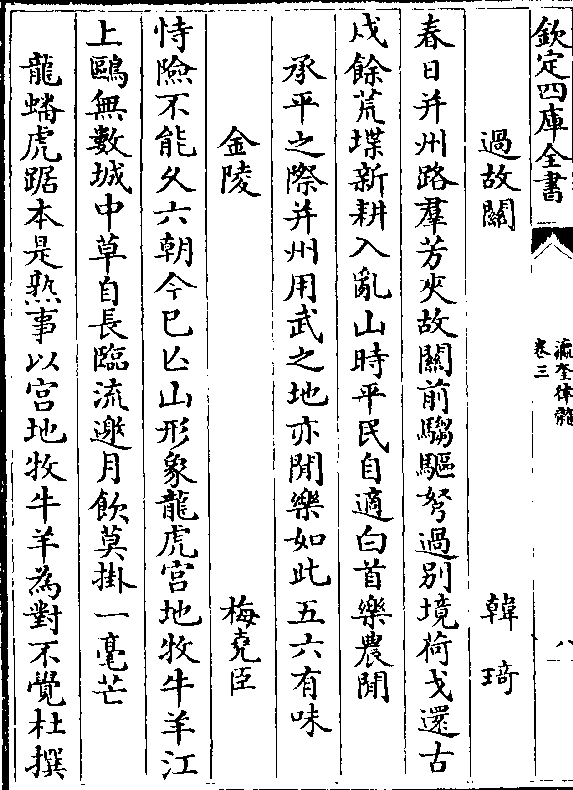 欽定四庫全書
瀛奎律髓
卷三
八
過故關
韓琦
春日并州路羣芳夾故關前騶驅弩過別境荷戈還古
戍餘荒堞新耕入亂山時平民自適白首樂農閒
承平之際并州用武之地亦閒樂如此五六有味
金陵
梅堯臣
恃險不能久六朝今已亾山形象龍虎宮地牧牛羊江
上鷗無數城中草自長臨流邀月飲莫掛一毫芒
龍蟠虎踞本是熟事以宮地牧牛羊為對不覺杜撰